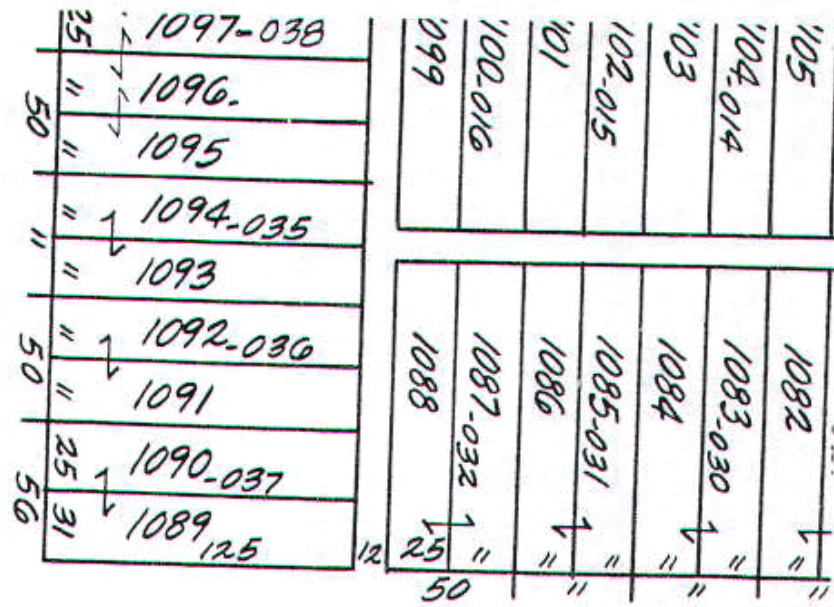 25 1097-038
" 1096.
50
" 1095
" 1094-035
"
" 1093
" 1092-036
50
" 1091
25 1090-037
56
31 1089
125
12
1099
1100-016
1101
1102-015
1103
1104-014
1105
1088
1087-032
1086
1085-031
1084
1083-030
1082
25 " " " " " "
50 " " "